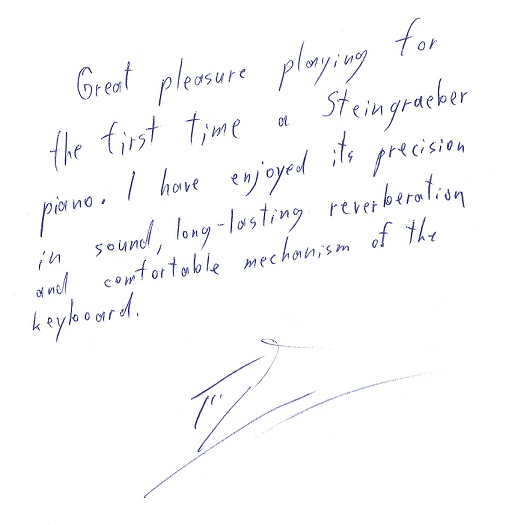 Great pleasure playing for
the first time a Steingraeber
piano. I have enjoyed its precision
in sound, long-lasting reverberation
and comfortable mechanism of the
keyboard.